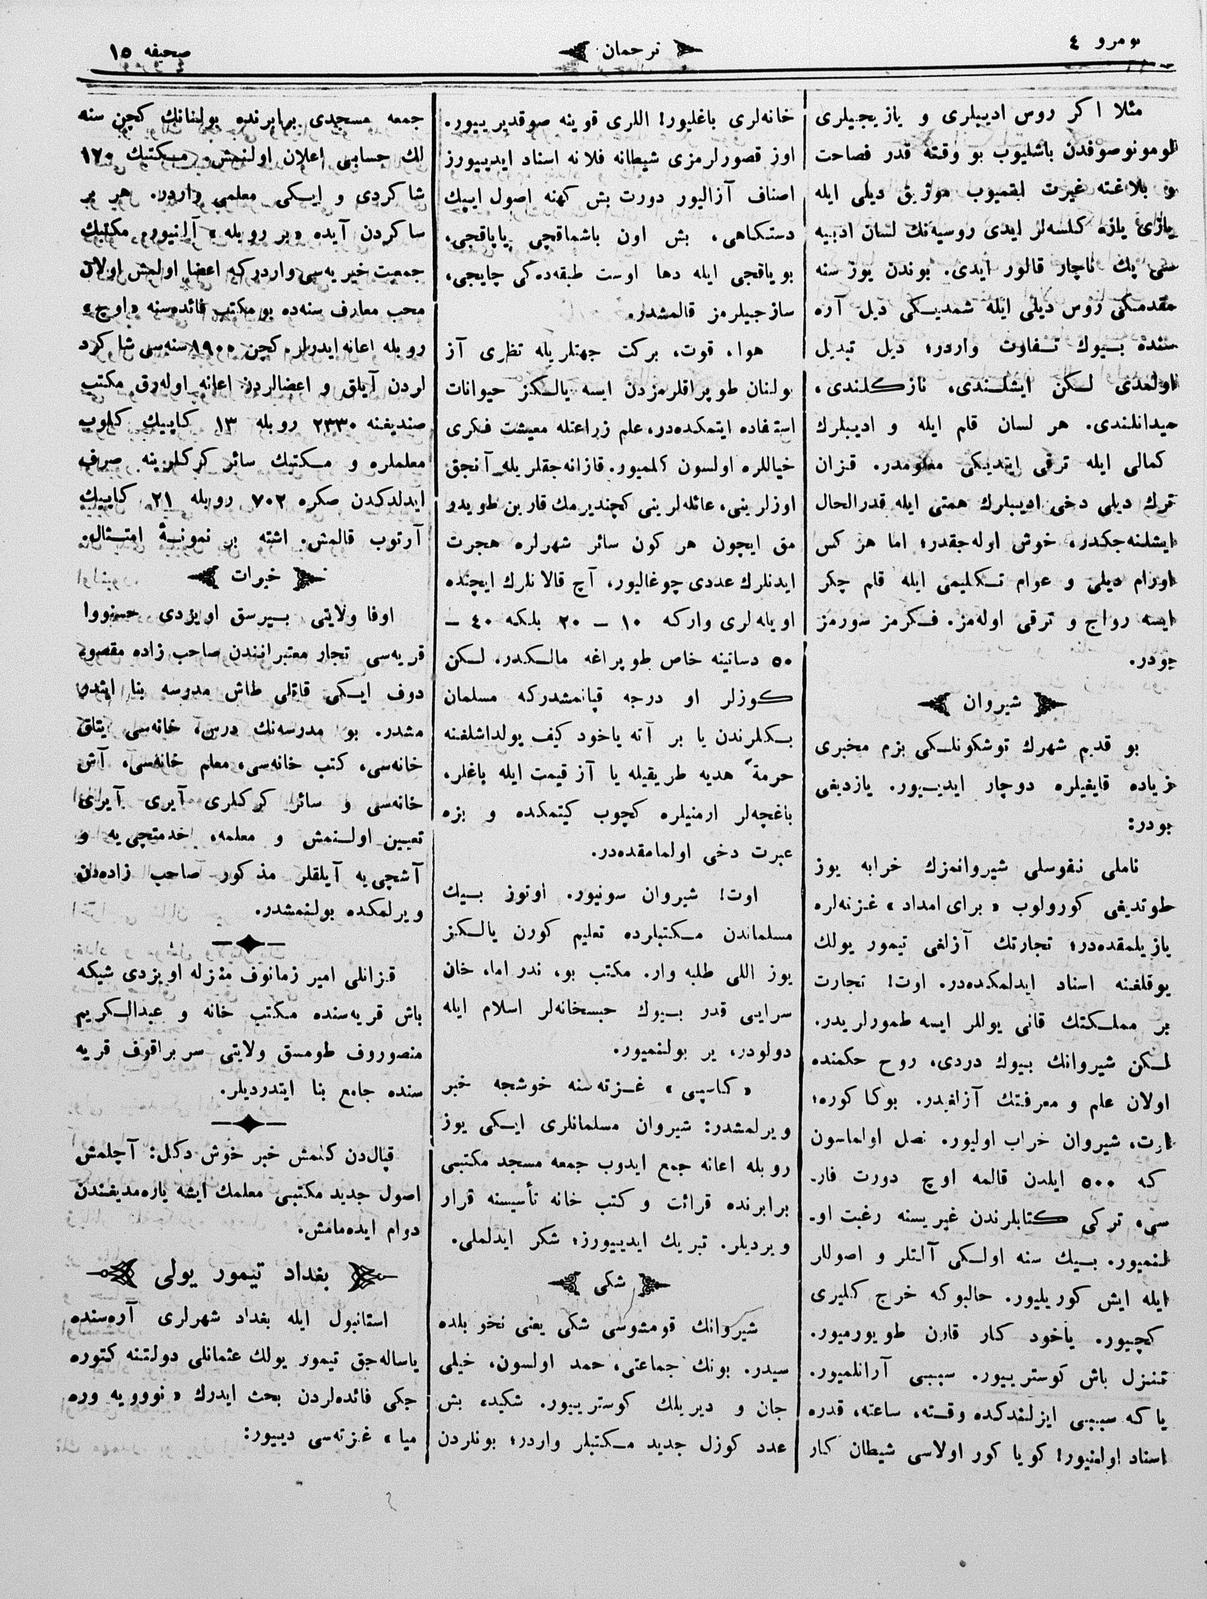 نومرو ٤
ترجمان
صحیفه ١٥
مثلا اكر روس ادیبلری و یازیجیلری
لومونوصوفدن باشلیوب بو وقته قدر فصاحت
و بلاغته غیرت ایتمیوب موژیق دیلی ایله
یازی یازه كلسه‌لر ایدی روسیه‌نك لسان ادبیه
سی پك ناچار قالور ایدی. بوندن یوز سنه
مقدمكی روس دیلی ایله شمدیكی دیل آره
سنده بیوك تفاوت واردر؛ دیل تبدیل
اولمدی لكن ایشلندی، نازكلندی،
میدانلندی. هر لسان قلم ایله و ادیبلرك
كمالی ایله ترقی ایتدیكی معلومدر. قزان
ترك دیلی دخی ادیبلرك همتی ایله قدرالحال
ایشلنه‌جكدر، خوش اوله‌جقدر؛ اما هر كس
اورام دیلی و عوام تكلیمی ایله قلم چكر
ایسه رواج و ترقی اوله‌مز. فكرمز سورمز
بودر.
شیروان
بو قدیم شهرك توشكونلكی بزم مخبری
زیاده قایغیلره دوچار ایدیور. یازدیغی
بودر:
ناملی نفوسلی شیروانمزك خرابه یوز
طوتدیغی كورولوب «برای امداد» غزته‌لره
یازیلمقده‌در؛ تجارتك آزلغی تیمور یولك
یوقلغنه اسناد ایدلمكده‌در. اوت! تجارت
بر مملكتك قانی یوللر ایسه طمورلریدر.
لكن شیروانك بیوك دردی، روح حكمنده
اولان علم و معرفتك آزلغیدر. بوكا كوره؛
ارت، شیروان خراب اولیور. نصل اولماسون
كه ٥٠٠ ایلدن قالمه اوچ دورت فار-
سی، تركی كتابلرندن غیریسنه رغبت او-
لنمیور. بیك سنه اولكی آلتلر و اصوللار
ایله ایش كوریلیور. حالبوكه خرج كلیری
كچیور. یاخود كنار قارن طویورمیور.
تنزل باش كوستریور. سببی آرانلمیور.
یا كه سببی ایزلندكده وقته، ساعته، قدره
اسناد اولنیور! كویا كور اولاسی شیطان كنار
خانه‌لری باغلیور! اللری قوینه صوقدیریور.
اوز قصورلرمزی شیطانه فلانه اسناد ایدییورز
اصناف آزالیور دورت بش كهنه اصول ایپك
دستكاهی، بش اون باشماقچی پاپاقچی،
بویاقجی ایله دها اوست طبقه‌ده‌كی چایجی،
سازجیلرمز قالمشدر.
هوا، قوت، بركت جهتلریله نظری آز
بولنان طوپراقلرمزدن ایسه یالكنز حیوانات
استفاده ایتمكده‌در، علم زراعتله معیشت فكری
خیاللره اولسون كلمیور. قازانه‌جقلریله آنجق
اوزلرینی، عائله‌لرینی كچندیرمك قارین طویدو
مق ایچون هر كون سائر شهرلره هجرت
ایدنلرك عددی چوغالیور، آچ قالانلرك ایچنده
اویله‌لری واركه ١٠ – ٢٠ بلكه ٤٠ –
٥٠ دساتینه خاص طوپراغه مالكدر. لكن
كوزلر او درجه قپانمشدركه مسلمان
بكلرندن یا بر آته یاخود كیف یولداشلغنه
حرمةً هدیه طریقیله یا آز قیمت ایله باغلر،
باغچه‌لر ارمنیلره كچوب كیتمكده و بزه
عبرت دخی اولمامقده‌در.
اوت! شیروان سونیور. اوتوز بیك
مسلماندن مكتبلرده تعلیم كورن یالكنز
یوز اللی طلبه وار. مكتب بو، ندر اما، خان
سرایی قدر بیوك حبسخانه‌لر اسلام ایله
دولودر، یر بولنمیور.
«كاسپی» غزته‌سنه خوشجه خبر
ویرلمشدر: شیروان مسلمانلری ایكی یوز
روبله اعانه جمع ایدوب جمعه مسجد مكتبی
برابرنده قرائت و كتب خانه تأسیسنه قرار
ویردیلر. تبریك ایدییورز؛ شكر ایدلملی.
شكی
شیروانك قومشوسی شكی یعنی نخو بلده
سیدر. بونك جماعتی، حمد اولسون، خیلی
جان و دیریلك كوستریور. شكیده بش
عدد كوزل جدید مكتبلر واردر؛ بونلردن
جمعه مسجدی برابرنده بولنانك كچن سنه
لك حسابی اعلان اولنمش. مكتبك ١٧٠
شاكردی و ایكی معلمی واردر. هر بر
شاكردن آیده «بر روبله» آلنیور، مكتبك
جمعیت خیریه‌سی واردركه اعضا اولمش اولان
محب معارف سنه‌ده بو مكتب فائده‌سنه «اوچ»
روبله اعانه ایدرلر. كچن ١٩٠٠ سنه‌سی شاكرد
لردن آیلق و اعضالردن اعانه اوله‌رق مكتب
صندیغنه ٢٣٣٠ روبله ١٣ كاپیك كلوب
معلملره و مكتبك سائر كركلرینه صرف
ایدلدكدن صكره ٧٠٢ روبله ٢١ كاپیك
آرتوب قالمش. اشته بر نمونهٔ امتثال.
خیرات
اوفا ولایتی بیرسق اویزدی حسنووا
قریه‌سی تجار معتبرانندن صاحب زاده مقصو
دوف ایكی قاتلی طاش مدرسه بنا ایتدر
مشدر. بو مدرسه‌نك درس خانه‌سی یتلق
خانه‌سی، كتب خانه‌سی، معلم خانه‌سی، آش
خانه‌سی و سائر كركلری آیری آیری
تعیین اولنمش و معلمه، خدمتچی‌یه و
آشچی‌یه آیلقلر مذكور صاحب زاده‌دن
ویرلمكده بولنمشدر.
قزانلی امیر زمانوف منزله اویزدی شیكه
باش قریه‌سنده مكتب خانه و عبدالكریم
منصوروف طومسق ولایتی سربراقوف قریه
سنده جامع بنا ایتدردیلر.
قپال‌دن كلمش خبر خوش دكل: آچلمش
اصول جدید مكتبی معلمك ایشه یاره‌مدیغندن
دوام ایده‌مامش.
بغداد تیمور یولی
استانبول ایله بغداد شهرلری آره‌سنده
یاساله‌جق تیمور یولك عثمانلی دولتنه كتوره
جكی فائده‌لردن بحث ایدرك «نوویه وره
میا» غزته‌سی دییور: